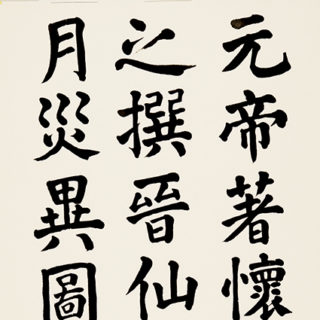 元帝著懷
之撰晉仙
月災異圖